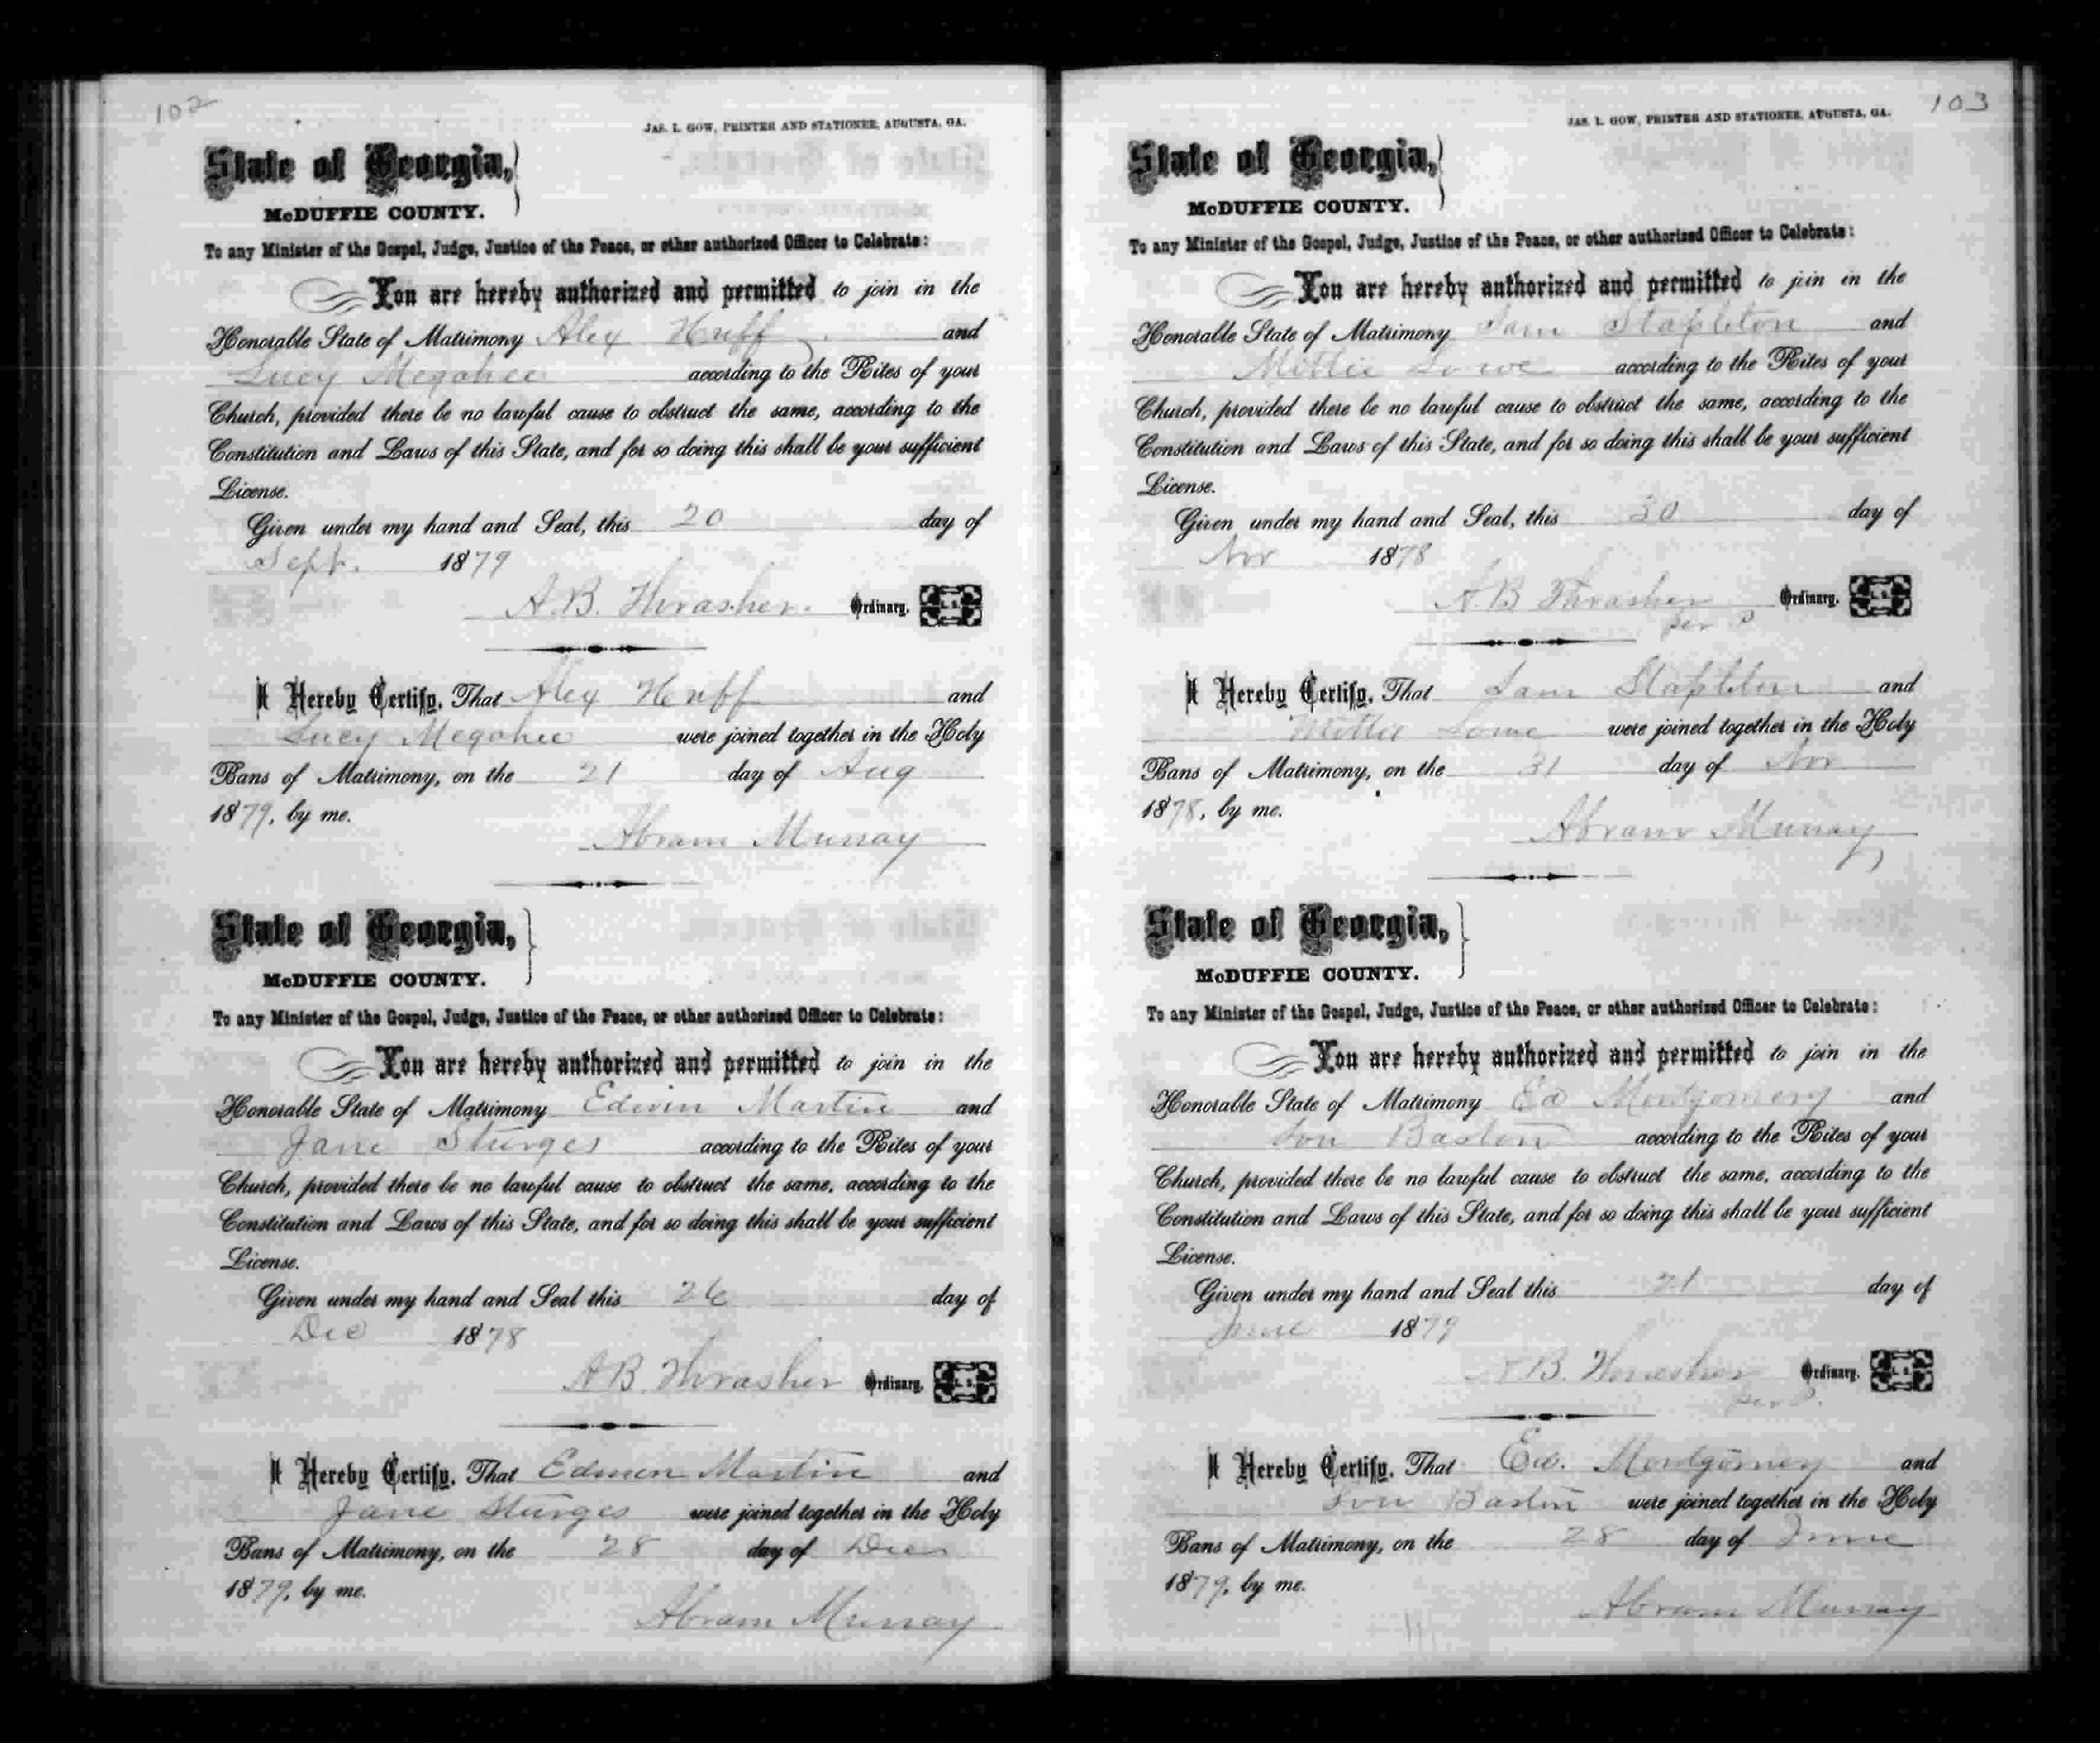 102
JAS. L. GOW, PRINTER AND STATIONER, AUGUSTA, GA.
State of Georgia,
McDUFFIE COUNTY.
To any Minister of the Gospel, Judge, Justice of the Peace, or other authorized Officer to Celebrate:
You are hereby authorized and permitted to join in the
Honorable State of Matrimony Alex Huff and
Lucy Megahee according to the Rites of your
Church, provided there be no lawful cause to obstruct the same, according to the
Constitution and Laws of this State, and for so doing this shall be your sufficient
License.
Given under my hand and Seal, this 20 day of
Sept. 1879
A.B. Thrasher. Ordinary. L. S.
I Hereby Certify, That Alex Huff and
Lucy Megahee were joined together in the Holy
Bans of Matrimony, on the 21 day of Aug
1879, by me.
Abram Murray
State of Georgia,
McDUFFIE COUNTY.
To any Minister of the Gospel, Judge, Justice of the Peace, or other authorized Officer to Celebrate:
You are hereby authorized and permitted to join in the
Honorable State of Matrimony Edwin Martin and
Jane Sturges according to the Rites of your
Church, provided there be no lawful cause to obstruct the same, according to the
Constitution and Laws of this State, and for so doing this shall be your sufficient
License.
Given under my hand and Seal this 26 day of
Dec 1878
A B. Thrasher Ordinary. L. S.
I Hereby Certify, That Edmon Martin and
Jane Sturges were joined together in the Holy
Bans of Matrimony, on the 28 day of Dec
1879, by me.
Abram Murray
103
JAS. L. GOW, PRINTER AND STATIONER, AUGUSTA, GA.
State of Georgia,
McDUFFIE COUNTY.
To any Minister of the Gospel, Judge, Justice of the Peace, or other authorized Officer to Celebrate:
You are hereby authorized and permitted to join in the
Honorable State of Matrimony Sam Stapleton and
Mittie Lowe according to the Rites of your
Church, provided there be no lawful cause to obstruct the same, according to the
Constitution and Laws of this State, and for so doing this shall be your sufficient
License.
Given under my hand and Seal, this 30 day of
Nov 1878
A. B Thrasher Ordinary. L. S.
per
I Hereby Certify, That Sam Stapleton and
Lowe were joined together in the Holy
Bans of Matrimony, on the 31 day of Nov
1878, by me.
Abram Murray
State of Georgia,
McDUFFIE COUNTY.
To any Minister of the Gospel, Judge, Justice of the Peace, or other authorized Officer to Celebrate:
You are hereby authorized and permitted to join in the
Honorable State of Matrimony Ed Montgomery and
Lou Bastin according to the Rites of your
Church, provided there be no lawful cause to obstruct the same, according to the
Constitution and Laws of this State, and for so doing this shall be your sufficient
License.
Given under my hand and Seal this 21 day of
June 1879
A B. Thrasher Ordinary. L. S.
per
I Hereby Certify, That Ed. Montgomery and
Lou Bastin were joined together in the Holy
Bans of Matrimony, on the 28 day of June
1879, by me.
Abram Murray